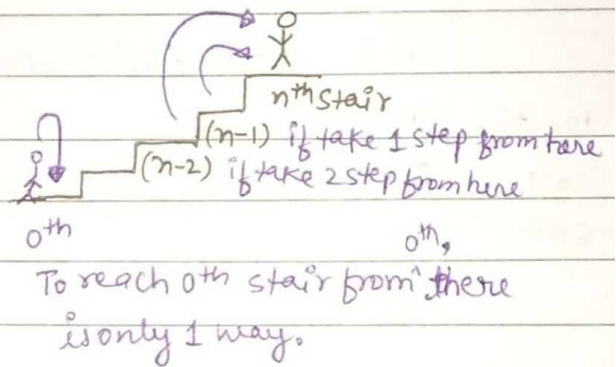 nth stair
(n-1) if take 1 step from here
(n-2) if take 2 step from here
0th
0th,
To reach 0th stair from ^ there
is only 1 way.